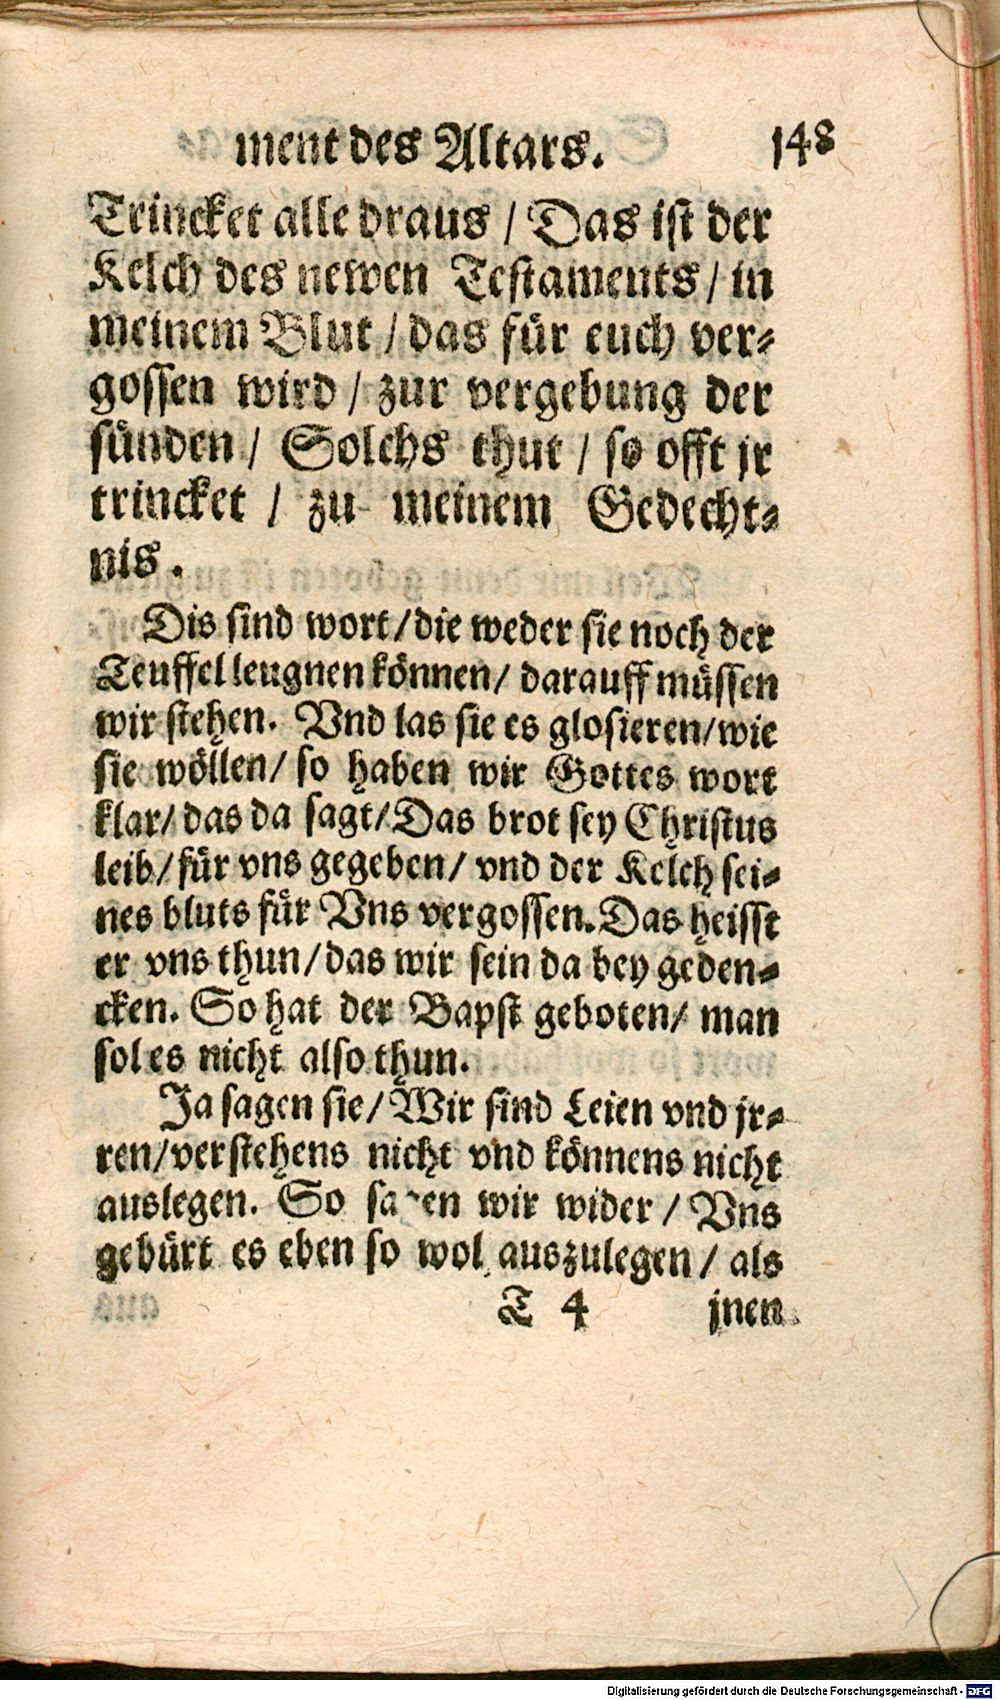 ment des Altars. 148
Trincket alle draus / Das ist der
Kelch des newen Testaments / in
meinem Blut / das für euch ver-
gossen wird / zur vergebung der
sünden / Solchs thut / so offt jr
trincket / zu meinem Gedecht-
nis.
Dis sind wort / die weder sie noch der
Teuffel leugnen können / darauff müssen
wir stehen. Vnd las sie es glosieren / wie
sie wöllen / so haben wir Gottes wort
klar / das da sagt / Das brot sey Christus
leib / für vns gegeben / vnd der Kelch sei-
nes bluts für Vns vergossen. Das heisst
er vns thun / das wir sein da bey geden-
cken. So hat der Bapst geboten / man
sol es nicht also thun.
Ja sagen sie / Wir sind Leien vnd jr-
ren / verstehens nicht vnd könnens nicht
auslegen. So sagen wir wider / Vns
gebürt es eben so wol auszulegen / als
T 4 jnen
Digitalisierung gefördert durch die Deutsche Forschungsgemeinschaft - DFG